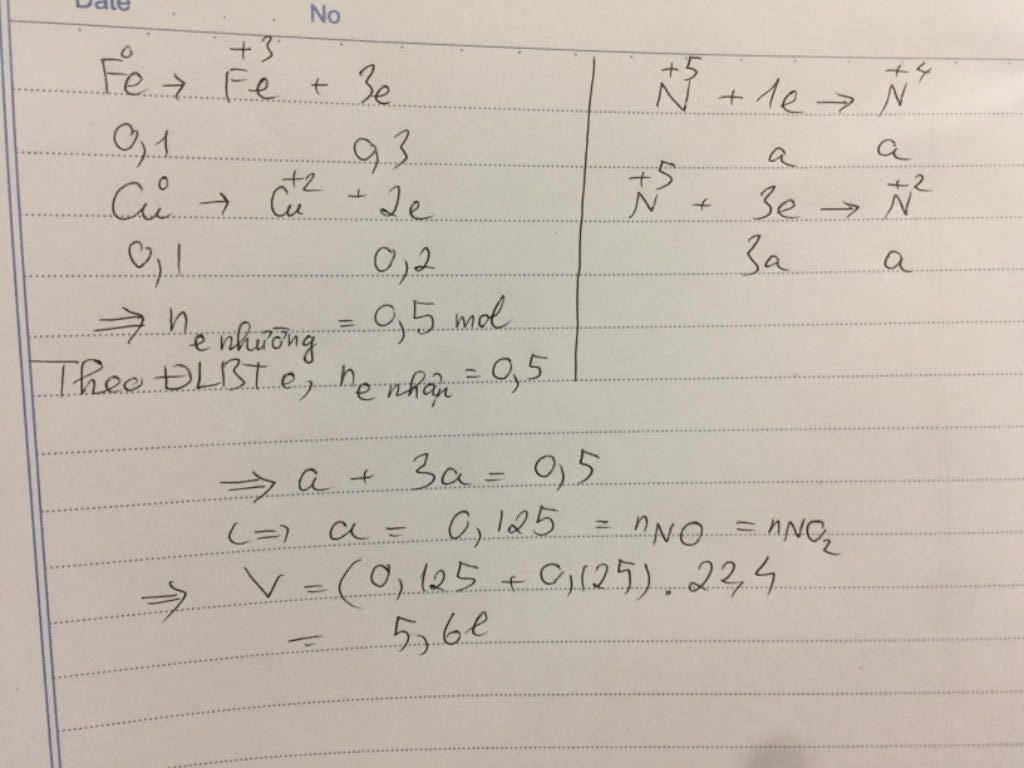 Date
No
Fe⁰ → Fe⁺³ + 3e
0,1 0,3
Cu⁰ → Cu⁺² + 2e
0,1 0,2
⇒ n e nhường = 0,5 mol
Theo ĐLBT e, n e nhận = 0,5
N⁺⁵ + 1e → N⁺⁴
a a
N⁺⁵ + 3e → N⁺²
3a a
⇒ a + 3a = 0,5
(=) a = 0,125 = nNO = nNO₂
⇒ V = (0,125 + 0,125). 22,4
= 5,6l